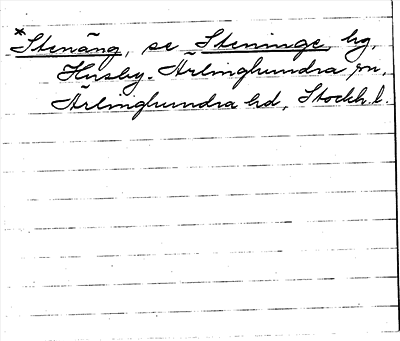 *Stenäng, se Steninge, hg,
Husby-Ärlinghundra sn,
Ärlinghundra hd, Stockh. l.